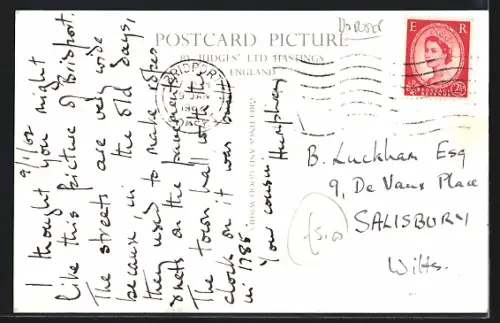 9/1/62
I thought you might
like this picture of Bridport.
The streets are very wide
because in the old days,
they used to make ropes
& nets on the pavements
The town hall with the
clock on it was built
in 1785.
Your cousin Humphrey
DORSET
POSTCARD PICTURE
BY JUDGES' LTD HASTINGS
ENGLAND
BRIDPORT
DORSET
E R
POSTAGE REVENUE
2½D
B. Luckham Esq
9, De Vaux Place
SALISBURY
Wilts.